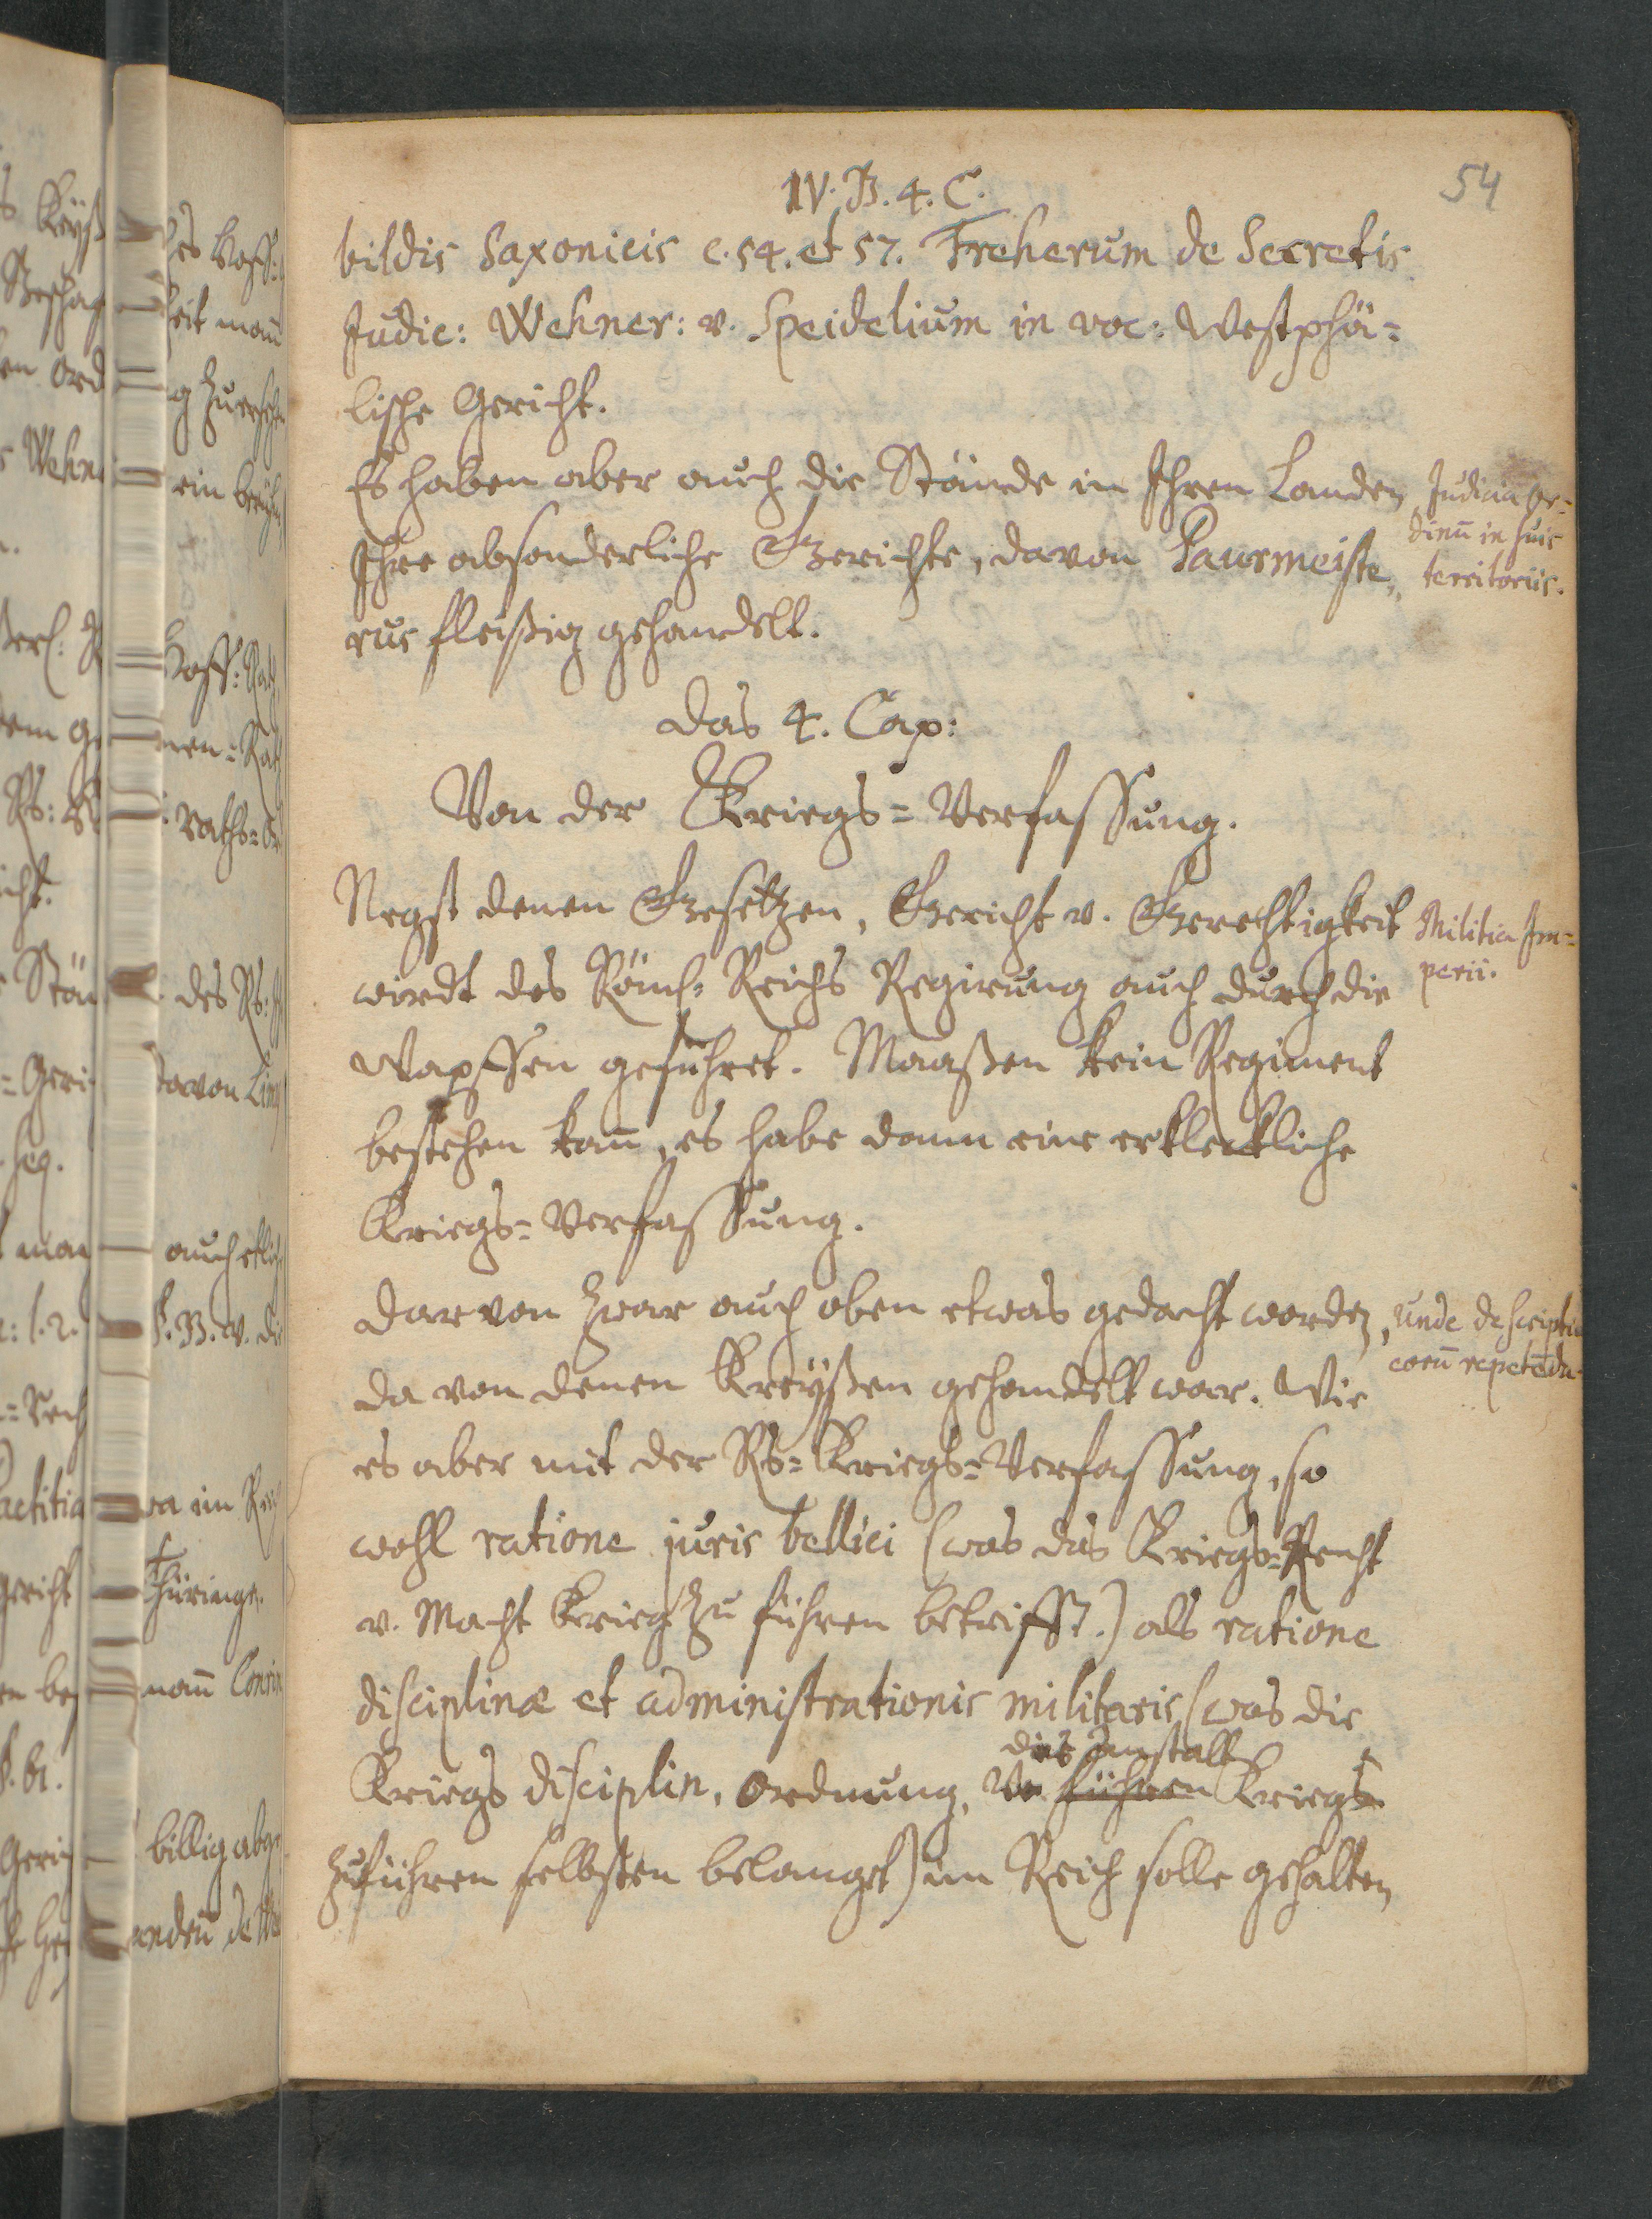 IV. B. 4. C.
54
bildis Saxonicis c. 54. et 57. Freherum de Secretis
Judic: Wehner: v. Speidelium in voc: Westphä=
lische Gericht.
Es haben aber auch die Stände in Ihren Landen
Ihre absonderliche Gerichte, davon Paurmeiste,,
rus fleißig gehandelt.
Judicia or=
dinū in suis
territoriis.
Das 4. Cap:
Von der Kriegs=Verfassung.
Negst denen Gesetzen, Gericht v. Gerechtigkeit
wirdt des Römh: Reichs Regirung auch durch die
Wapffen geführet. Maaßen kein Regiment
bestehen kan̄, es habe dann eine erkleckliche
Kriegs=Verfassung.
Militia Im=
perii.
Darvon zwar auch oben etwas gedacht worden,
da von denen Kreÿßen gehandelt war. Wie
es aber mit der Rs=Kriegs=Verfassung, so
wohl ratione juris bellici (was das Kriegs=Recht
v. Macht Krieg zu führen betrifft.) als ratione
disciplinæ et administrationis militaris (was die
unde descriptio
eorū repetēda.
die Anstalt
Kriegs disciplin, Ordnung, v. führen Kriegs
zuführen selbsten belanget) im Reich solle gehalten